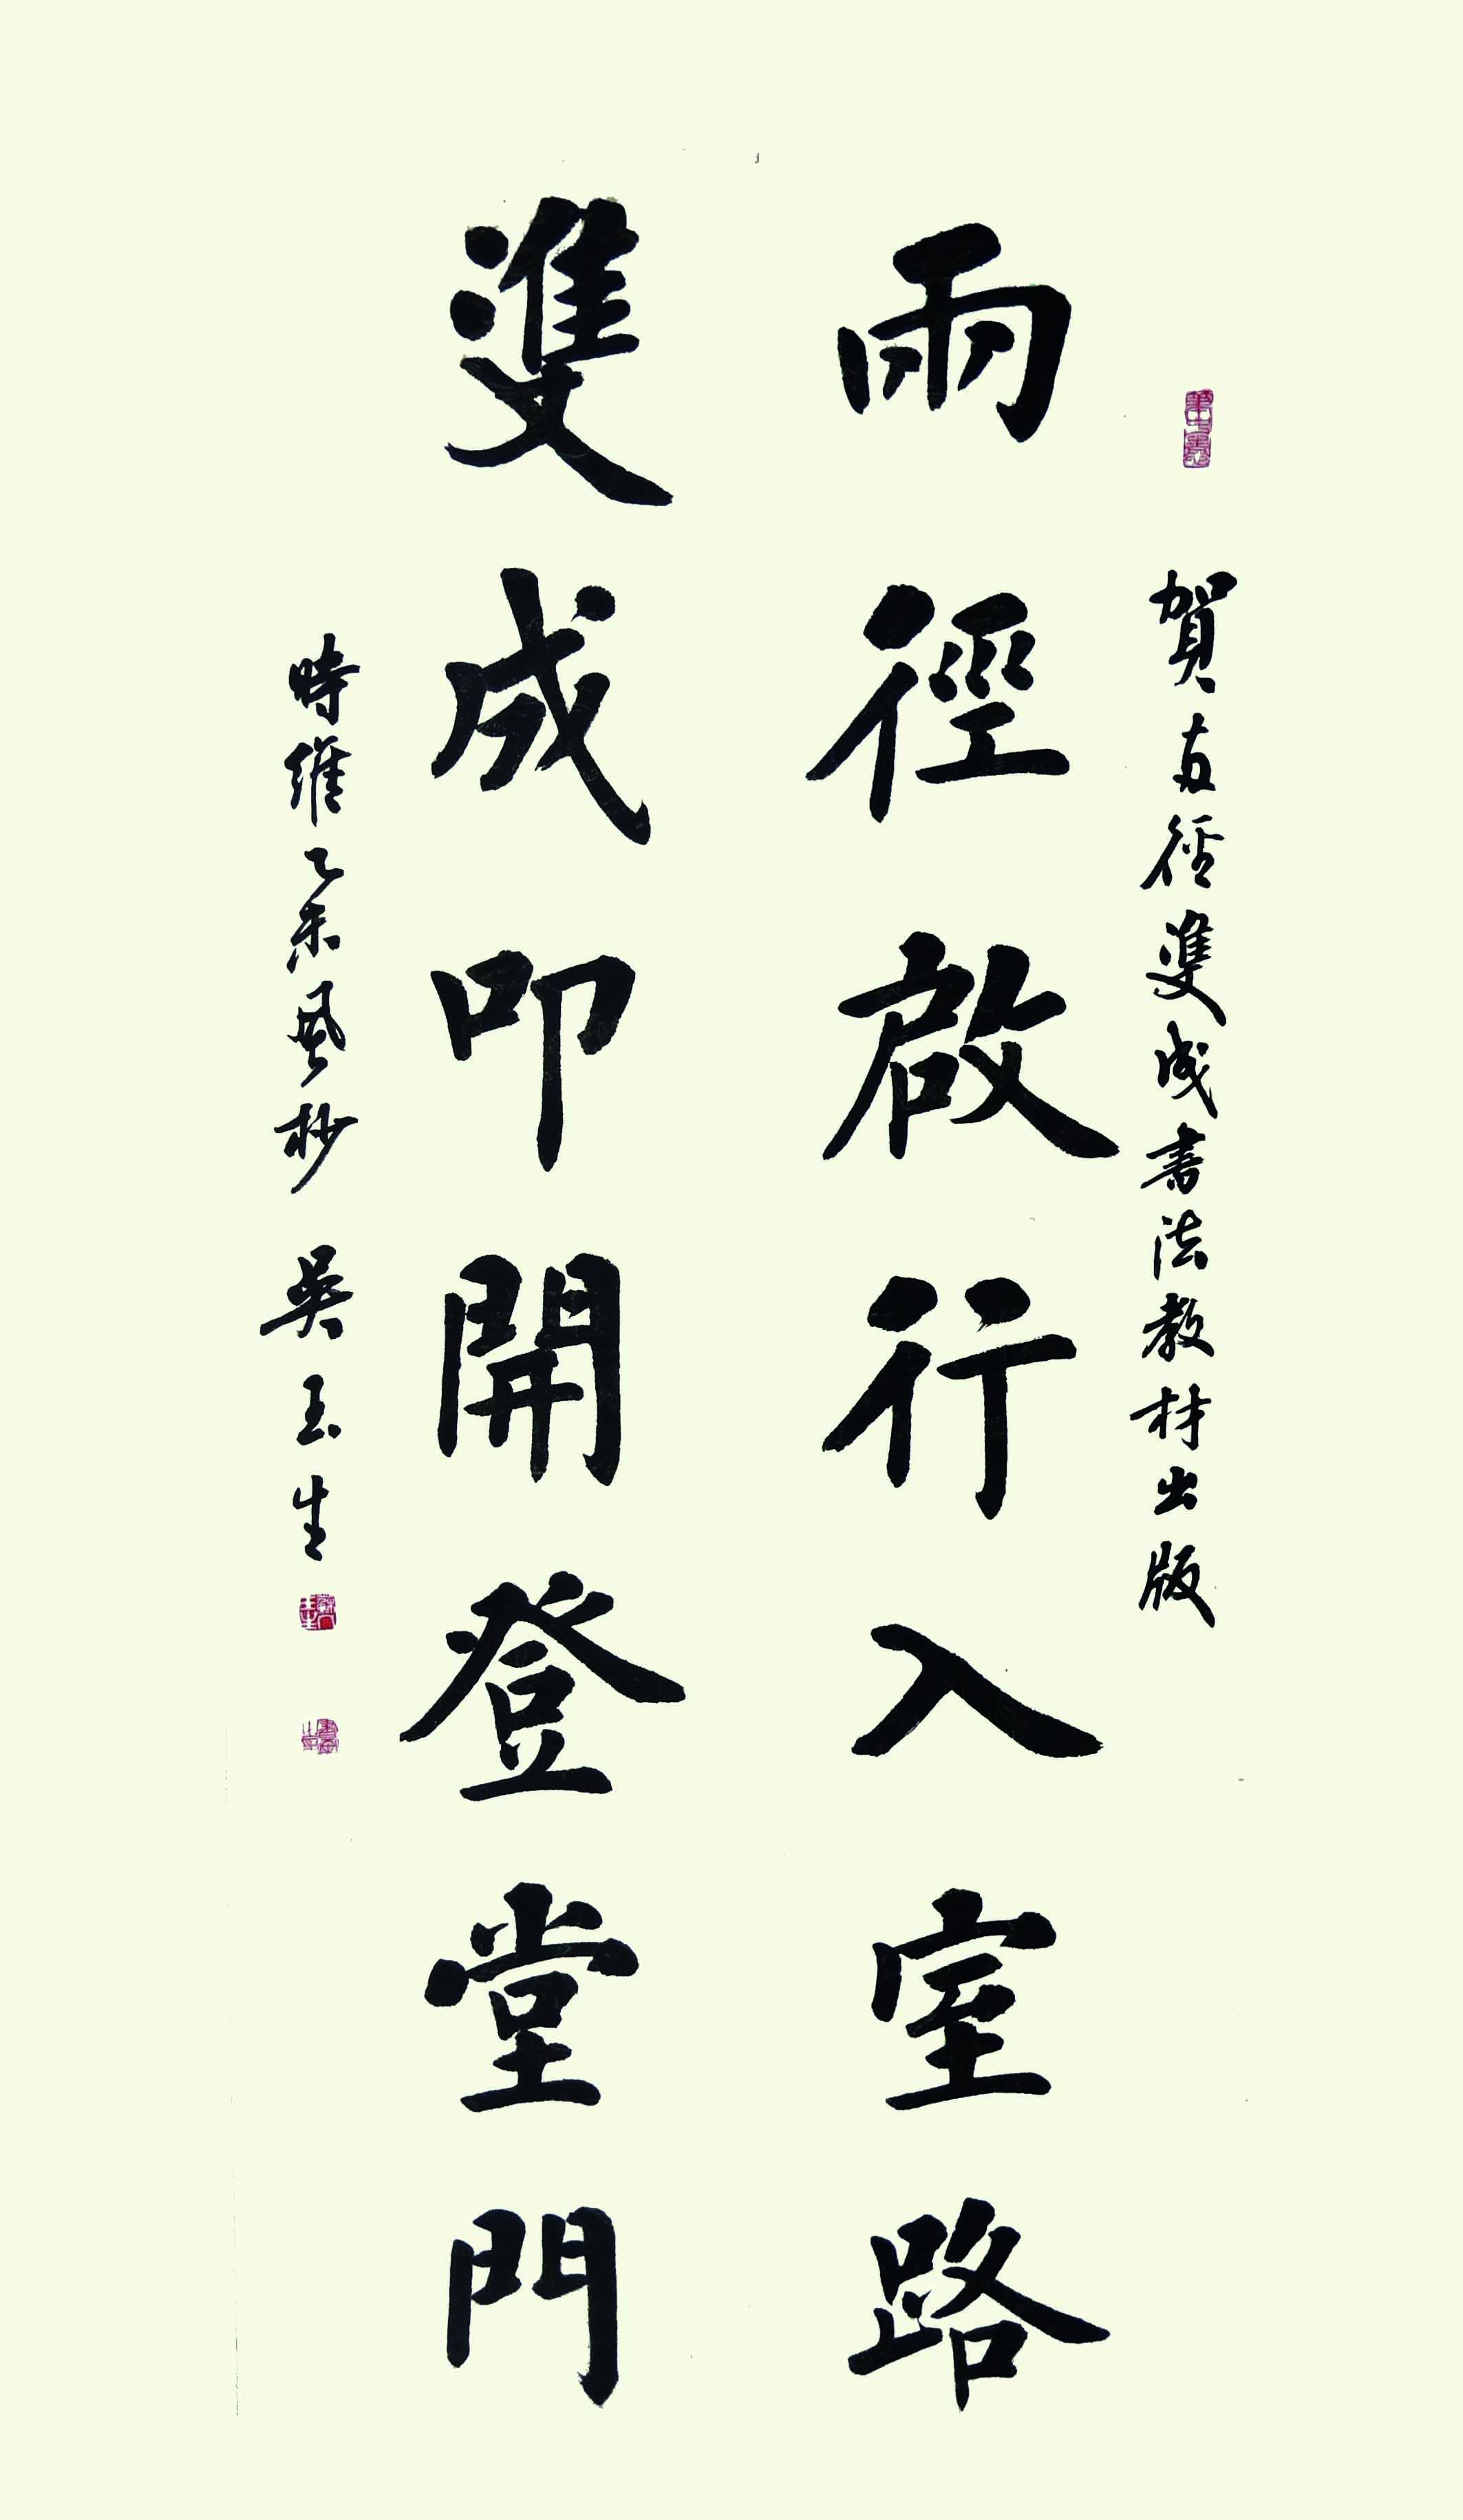 賀兩徑雙成書法教材出版
兩徑啟行入室路
雙成叩開登堂門
時維乙未夏杪 吳玉生